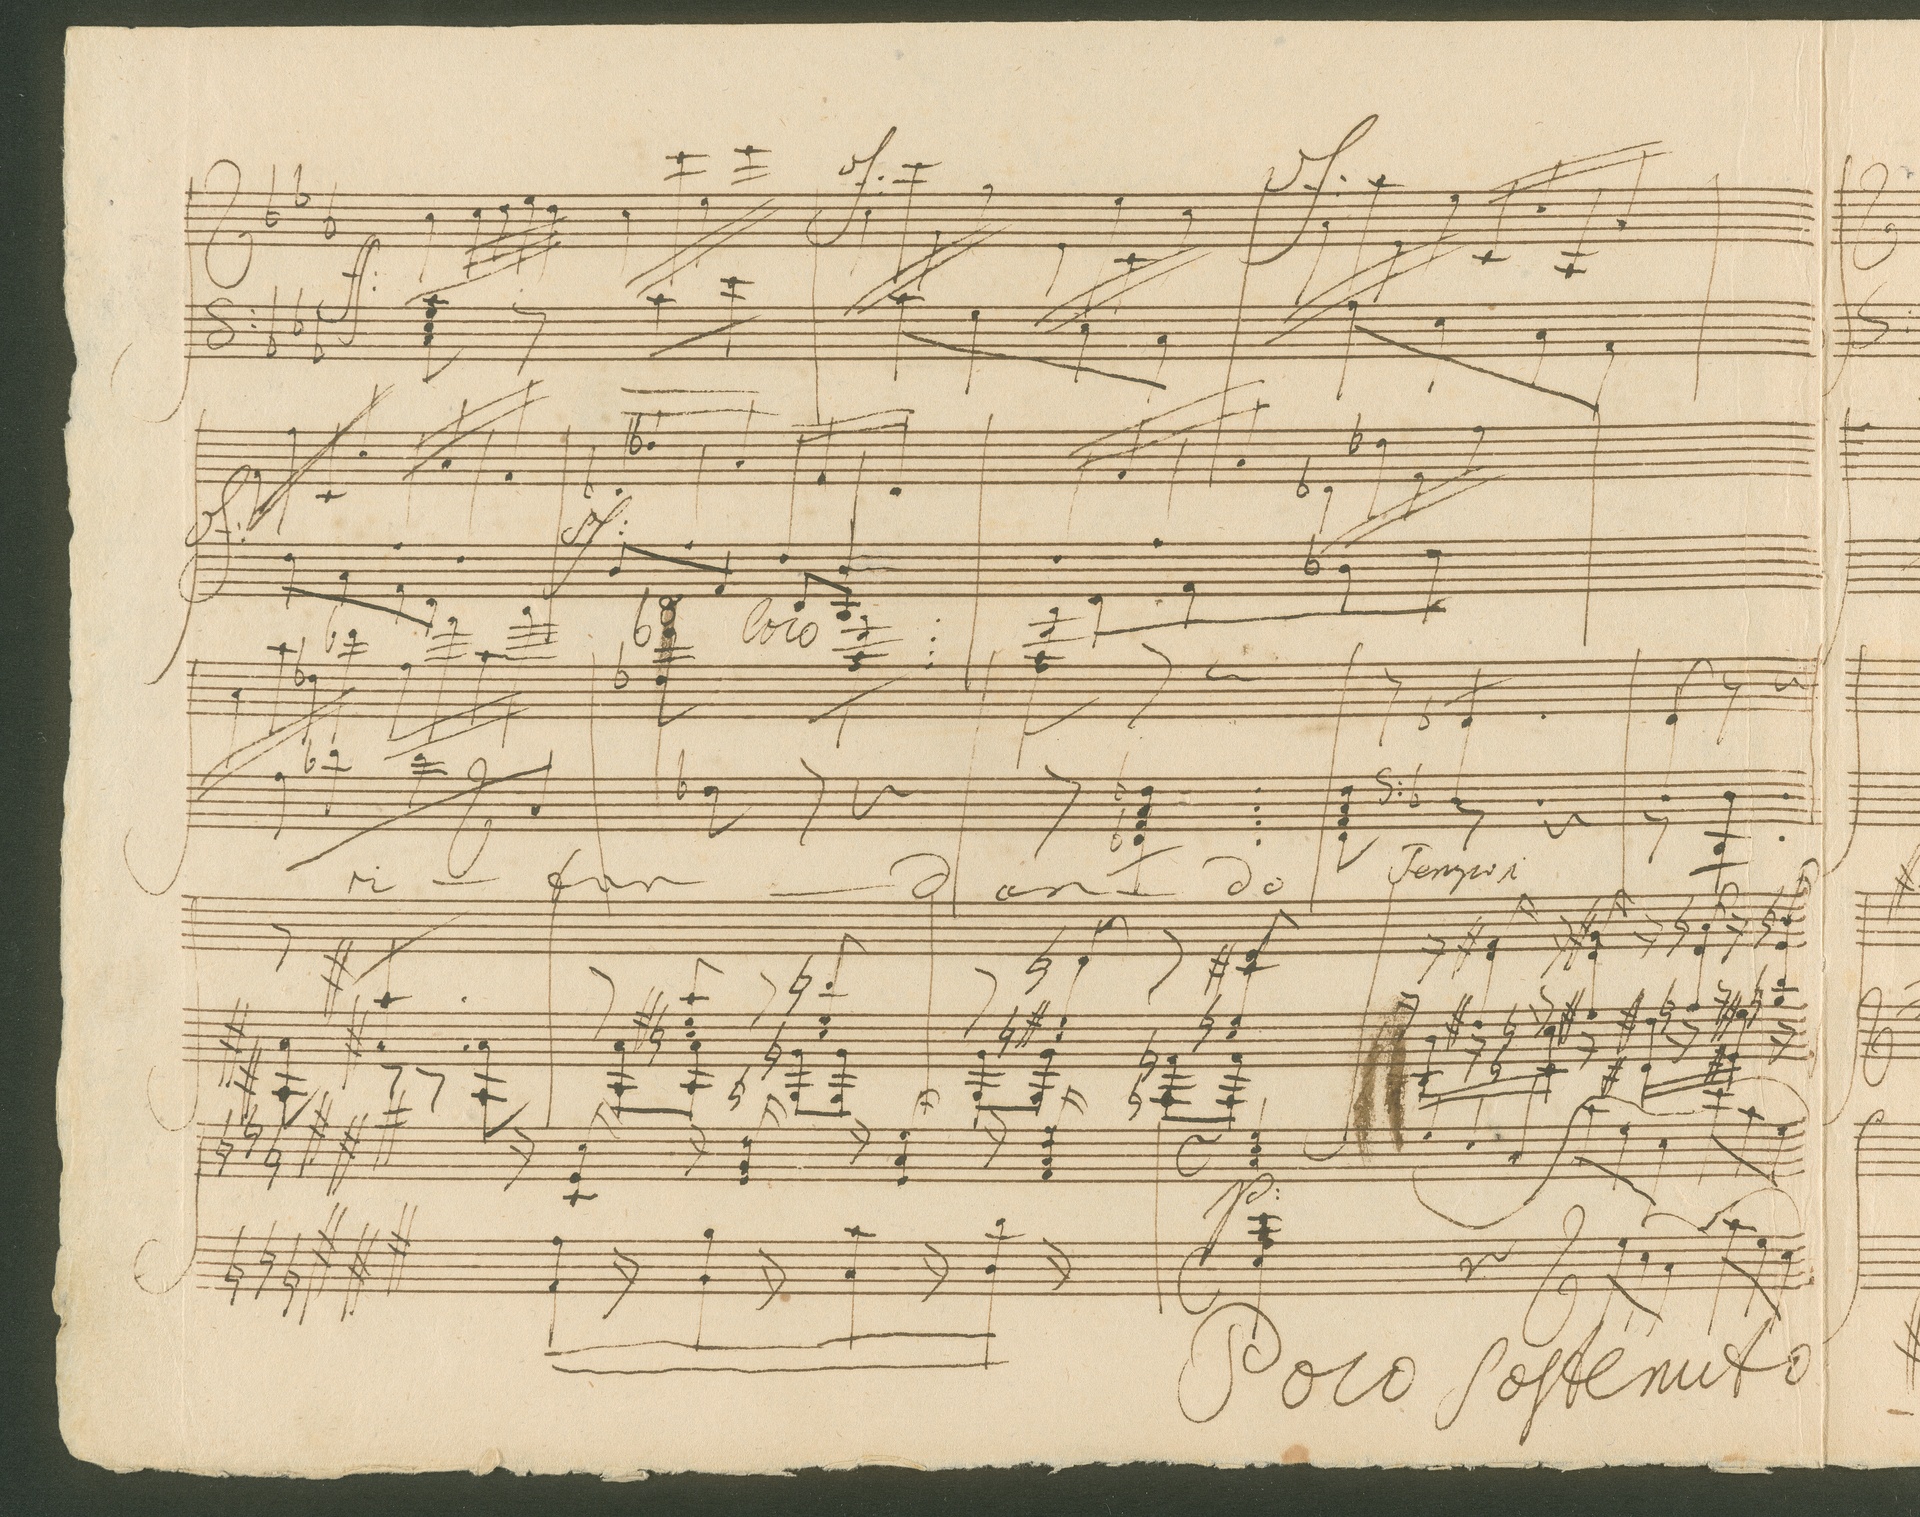 sf: sf:
ff:
sf: sf:
loco
ri – tar – – – d an – do
Tempo i
p:
Poco sostenuto